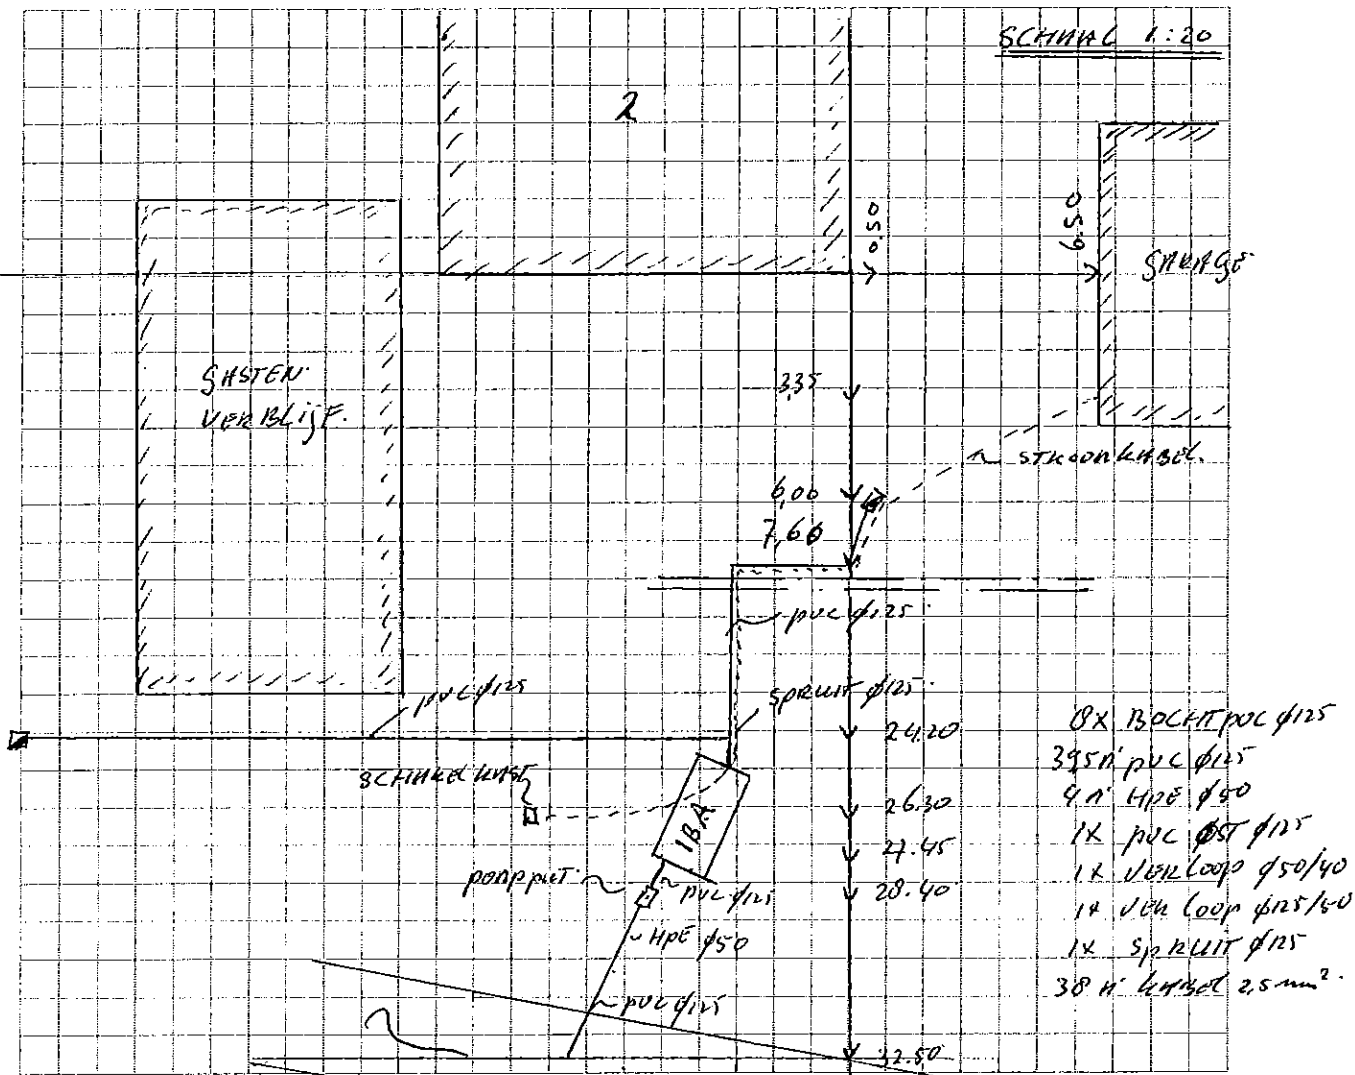 SCHAAL 1:20
2
0.50
6.50
GARAGE
3.35
GASTEN
VERBLIJF.
STROOMKABEL.
6,00
7,60
PVC ø125
SPRUIT ø125.
PVC ø125
24.20
SCHAKELKAST
IBA
26.30
27.45
28.40
POMPPUT.
PVC ø125
HPE ø50
PVC ø125
32.50
8x BOCHT PVC ø125
39,5 m' PVC ø125
4 m' HPE ø50
1x PVC ø125
1x VERLOOP ø50/40
1x VERLOOP ø125/50
1x SPRUIT ø125
38 m' KABEL 2,5 mm².